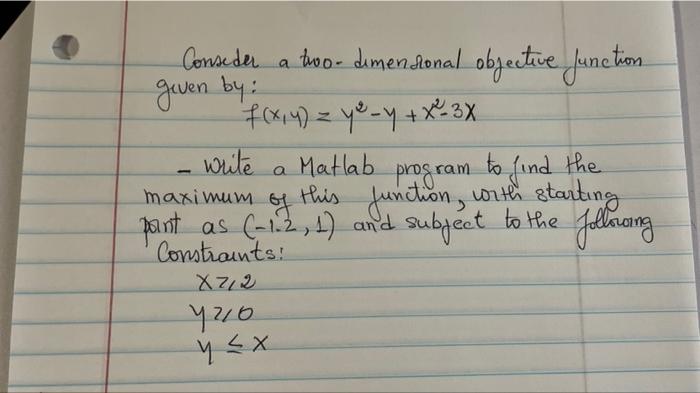 Consider a two-dimensional objective function
given by:
f(x,y) = y² - y + x² - 3x
- Write a Matlab program to find the
maximum of this function, with starting
point as (-1.2, 1) and subject to the following
Constraints:
x ≥ 2
y ≥ 0
y ≤ x